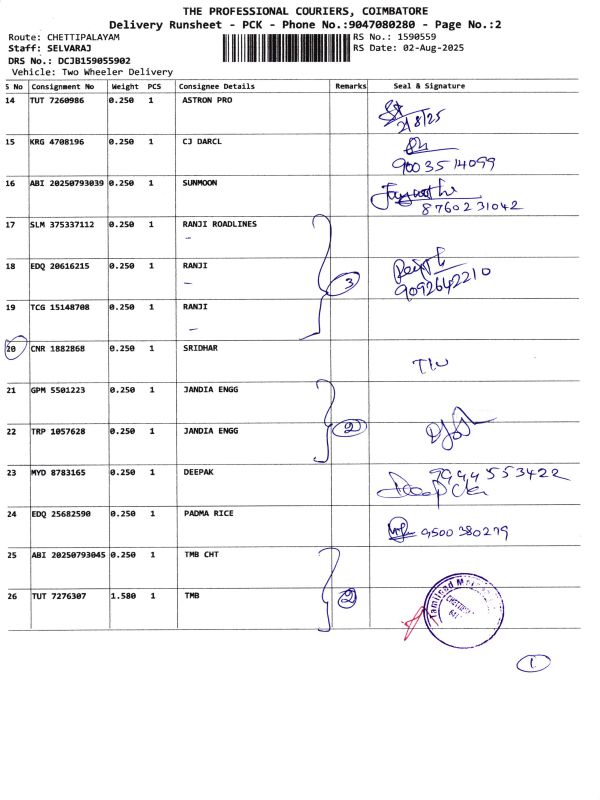 THE PROFESSIONAL COURIERS, COIMBATORE
Delivery Runsheet - PCK - Phone No.:9047080280 - Page No.:2
Route: CHETTIPALAYAM RS No.: 1590559
Staff: SELVARAJ RS Date: 02-Aug-2025
DRS No.: DCJB159055902
Vehicle: Two Wheeler Delivery
S No Consignment No Weight PCS Consignee Details Remarks Seal & Signature
14 TUT 7260986 0.250 1 ASTRON PRO
2/8/25
15 KRG 4708196 0.250 1 CJ DARCL
9003514099
16 ABI 20250793039 0.250 1 SUNMOON
8760231042
17 SLM 375337112 0.250 1 RANJI ROADLINES
18 EDQ 20616215 0.250 1 RANJI 3
9092642210
19 TCG 15148708 0.250 1 RANJI
20 CNR 1882868 0.250 1 SRIDHAR
21 GPM 5501223 0.250 1 JANDIA ENGG
22 TRP 1057628 0.250 1 JANDIA ENGG 2
23 MYD 8783165 0.250 1 DEEPAK 7944553422
24 EDQ 25682590 0.250 1 PADMA RICE
9500380279
25 ABI 20250793045 0.250 1 TMB CHT
26 TUT 7276307 1.580 1 TMB 2
Tamilnad
1